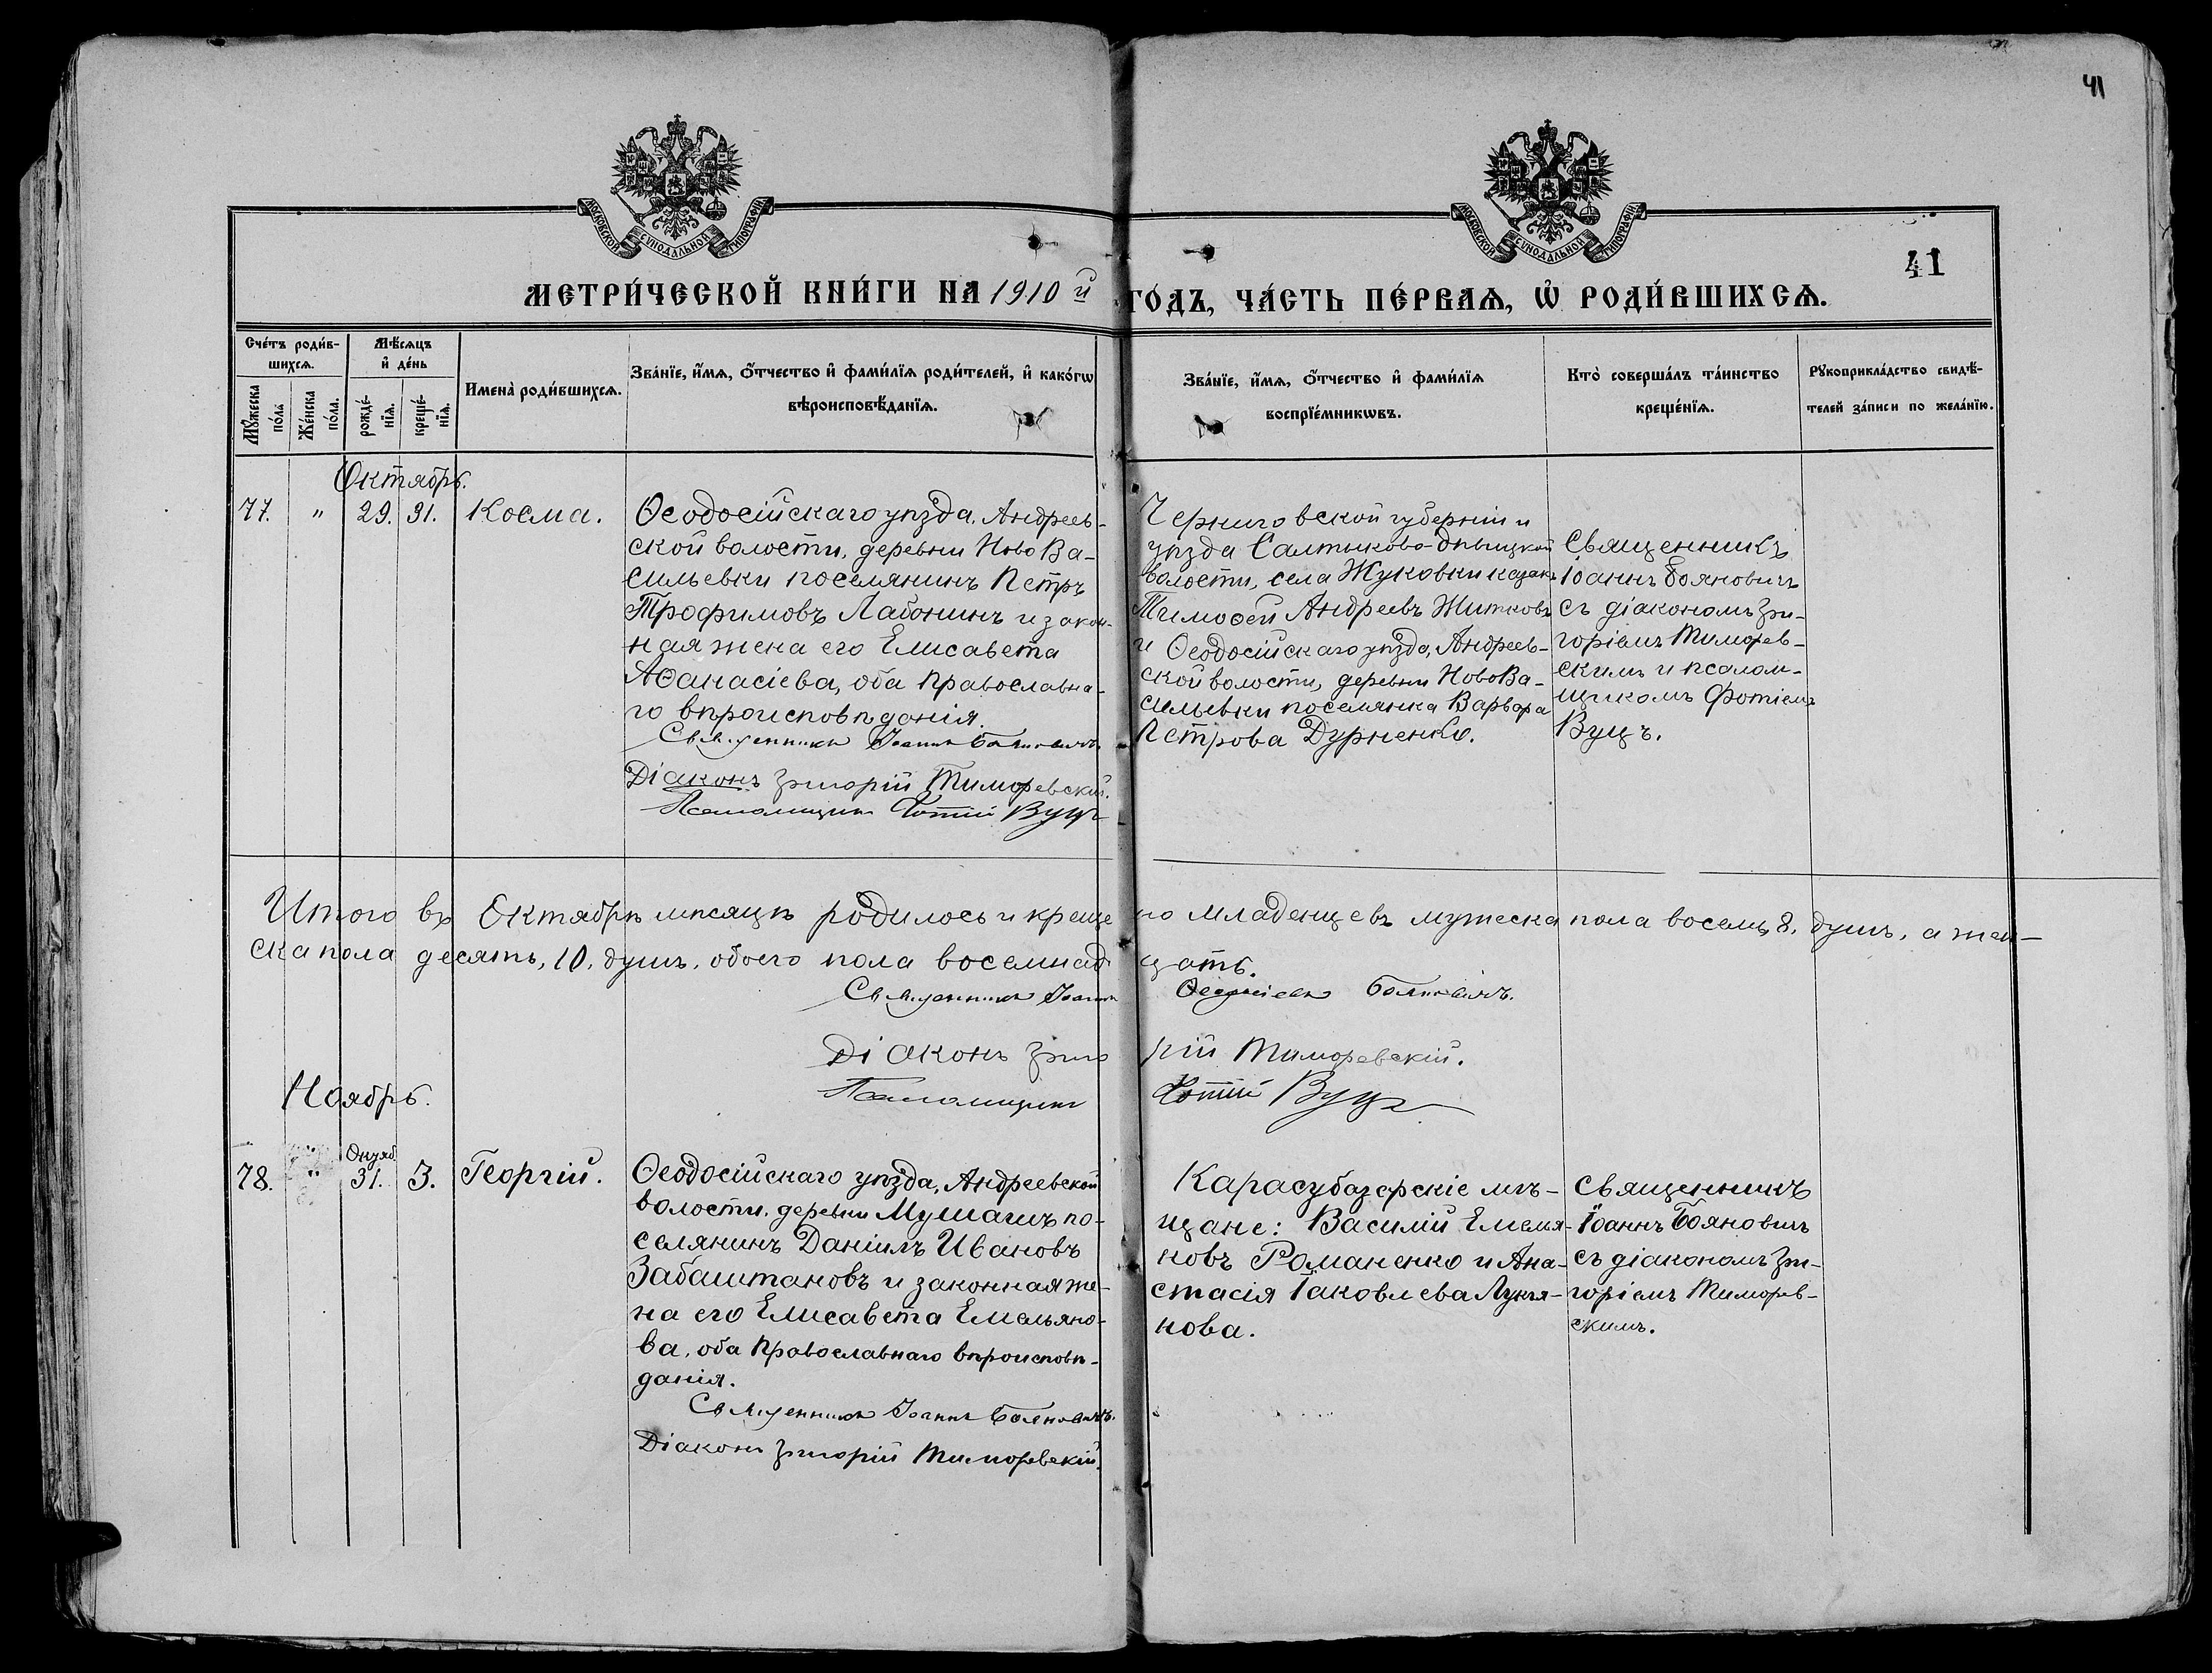 41
МОСКОВСКОЙ СѴНОДАЛЬНОЙ ТИПОГРАФІИ
МОСКОВСКОЙ СѴНОДАЛЬНОЙ ТИПОГРАФІИ
41
МЕТРИ́ЧЕСКОЙ КНИ́ГИ НА 1910 й ГО́ДЪ, ЧА́СТЬ ПЕ́РВАѦ, Ѡ҆ РОДИ́ВШИХСѦ.
Сче́тъ роди́в-
шихсѧ.
Мꙋ́жеска
по́ла
Же́нска
по́ла.
Мѣ́сѧцъ
и҆ де́нь
рожде́-
нїѧ.
креще́-
нїѧ.
Имена̀ роди́вшихсѧ.
Зва́нїе, и҆́мѧ, ѻ҆́тчество и҆ фами́лїѧ роди́телей, и҆ како́гѡ
вѣроисповѣ́данїѧ.
Зва́нїе, и҆́мѧ, ѻ҆́тчество и҆ фами́лїѧ
воспрїе́мникѡвъ.
Кто̀ соверша́лъ та́инство
креще́нїѧ.
Рꙋкоприкла́дство свидѣ́-
телей за́писи по жела́нїю.
Октябрь.
77. " 29. 31. Косма.
Ѳеодосійскаго уѣзда, Андреев-
ской волости, деревни Ново Ва-
сильевки поселянинъ Петръ
Трофимовъ Лабонинъ и закон-
ная жена его Елисавета
Аѳанасіева, оба православна-
го вѣроисповѣданія.
Священникъ Іоаннъ Бояновичъ
Діаконъ Григорій Тиморевскій.
Псаломщикъ Фотій Вуцъ
Черниговской губерніи и
уѣзда Салтыково-Дѣвицкой
волости, села Жуковки казакъ
Тимоѳей Андреевъ Житковъ
и Ѳеодосійскаго уѣзда, Андреев-
ской волости, деревни Ново Ва-
сильевки поселянка Варвара
Петрова Дурненко.
Священникъ
Іоаннъ Бояновичъ
съ діакономъ Гри-
горіемъ Тиморев-
скимъ и псалом-
щикомъ Фотіемъ
Вуцъ.
Итого въ Октябрѣ мѣсяцѣ родилось и крещено младенцевъ мужеска пола восемь, 8, душъ, а жен-
ска пола десять, 10, душъ, обоего пола восемнадцать.
Священникъ Іоаннъ Бояновичъ.
Діаконъ Григорій Тиморевскій.
Псаломщикъ Фотій Вуцъ
Ноябрь.
Октяб.
78. " 31. 3. Георгій.
Ѳеодосійскаго уѣзда, Андреевской
волости, деревни Мушашъ по-
селянинъ Даніилъ Ивановъ
Забаштановъ и законная же-
на его Елисавета Емельяно-
ва, оба православнаго вѣроисповѣ-
данія.
Священникъ Іоаннъ Бояновичъ.
Діаконъ Григорій Тиморевскій.
Карасубазарскіе мѣ-
щане: Василій Емелья-
новъ Романенко и Ана-
стасія Іаковлева Лукья-
нова.
Священникъ
Іоаннъ Бояновичъ
съ діакономъ Гри-
горіемъ Тиморев-
скимъ.